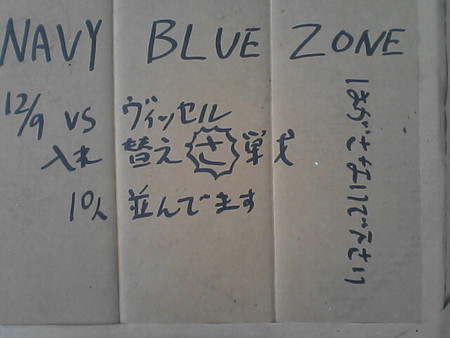 NAVY BLUE ZONE
12/9 vs ヴィッセル
入れ替えさ戦
10人 並んでます
はがさないで下さい